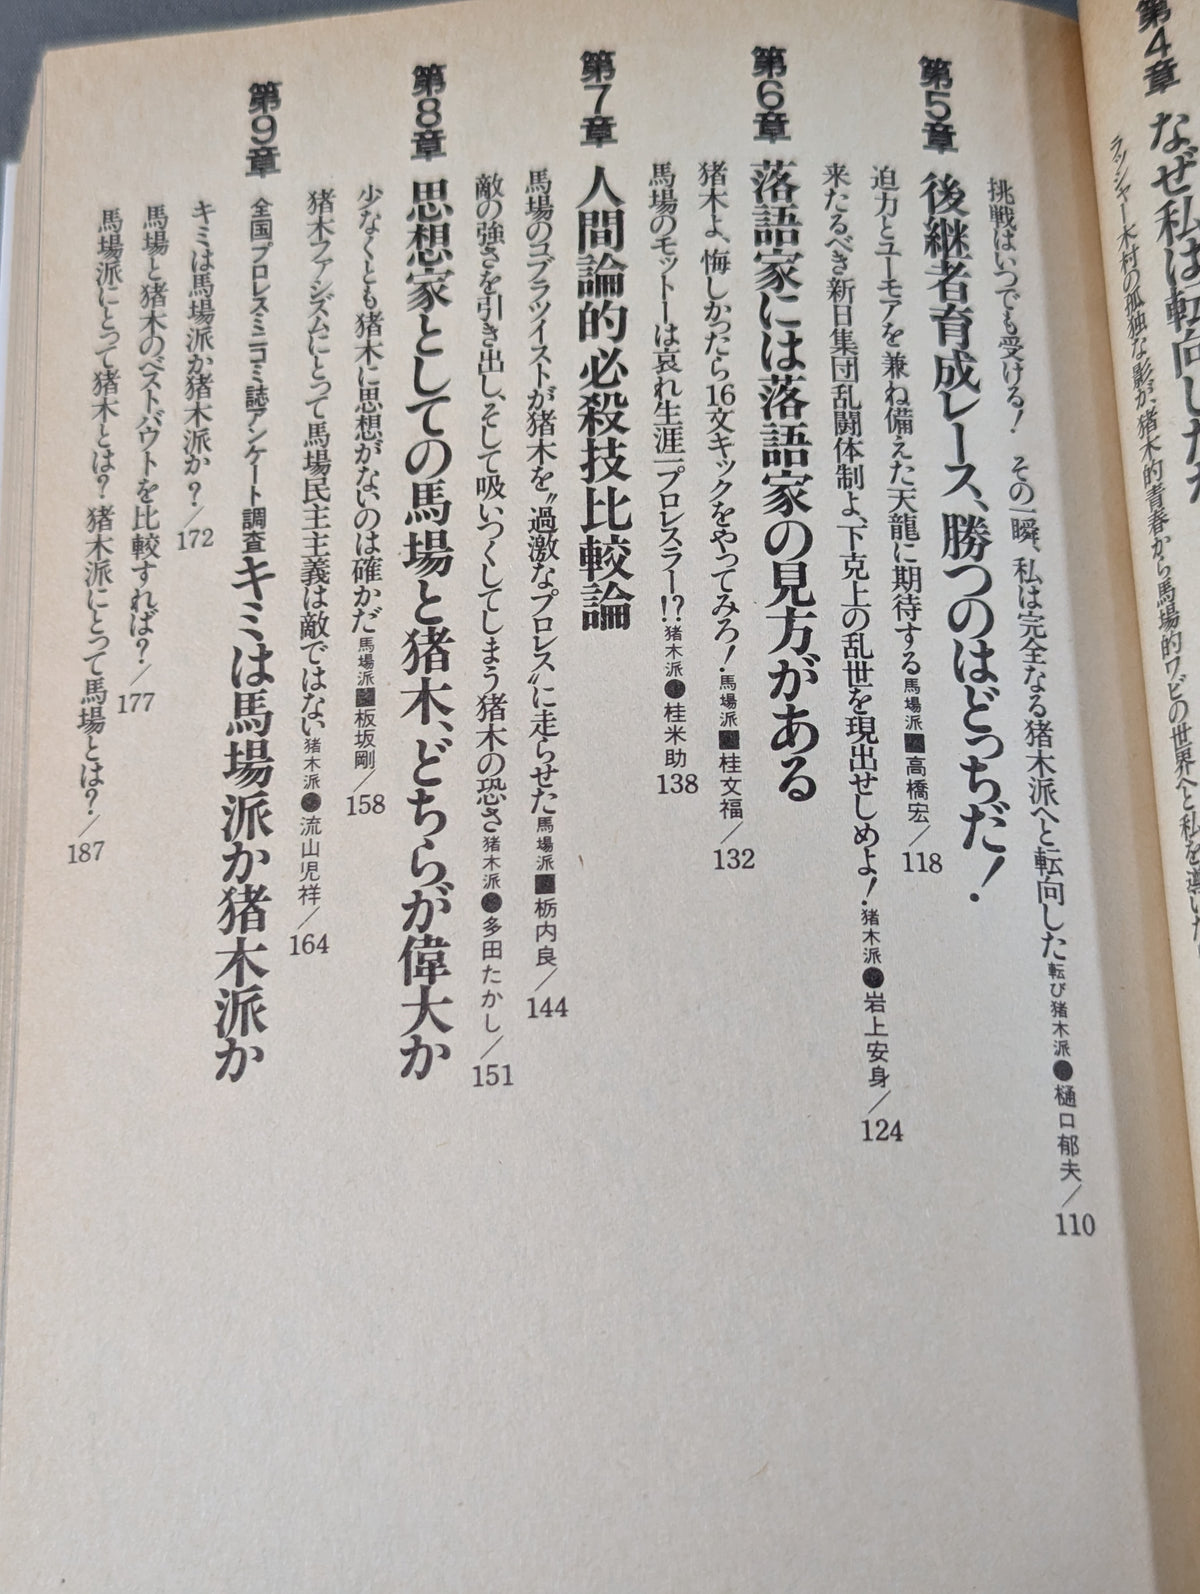 第4章 なぜ私は転向したか
ラッシャー木村の孤独な影が、猪木的青春から馬場的ワビの世界へと私を導いた
挑戦はいつでも受ける！ その一瞬、私は完全なる猪木派へと転向した 転び猪木派●樋口郁夫／110
第5章 後継者育成レース、勝つのはどっちだ！
迫力とユーモアを兼ね備えた天龍に期待する 馬場派■高橋宏／118
来たるべき新日集団乱闘体制よ、下克上の乱世を現出せしめよ！ 猪木派●岩上安身／124
第6章 落語家には落語家の見方がある
猪木よ、悔しかったら16文キックをやってみろ！ 馬場派■桂文福／132
馬場のモットーは哀れ生涯一プロレスラー!? 猪木派●桂米助138
第7章 人間論的必殺技比較論
馬場のコブラツイストが猪木を〝過激なプロレス〟に走らせた 馬場派■栃内良／144
敵の強さを引き出し、そして吸いつくしてしまう猪木の恐さ 猪木派●多田たかし／151
第8章 思想家としての馬場と猪木、どちらが偉大か
少なくとも猪木に思想がないのは確かだ 馬場派■板坂剛／158
猪木ファシズムにとって馬場民主主義は敵ではない 猪木派●流山児祥／164
第9章 全国プロレス・ミニコミ誌アンケート調査 キミは馬場派か猪木派か
キミは馬場派か猪木派か？／172
馬場と猪木のベストバウトを比較すれば？／177
馬場派にとって猪木とは？ 猪木派にとって馬場とは？／187